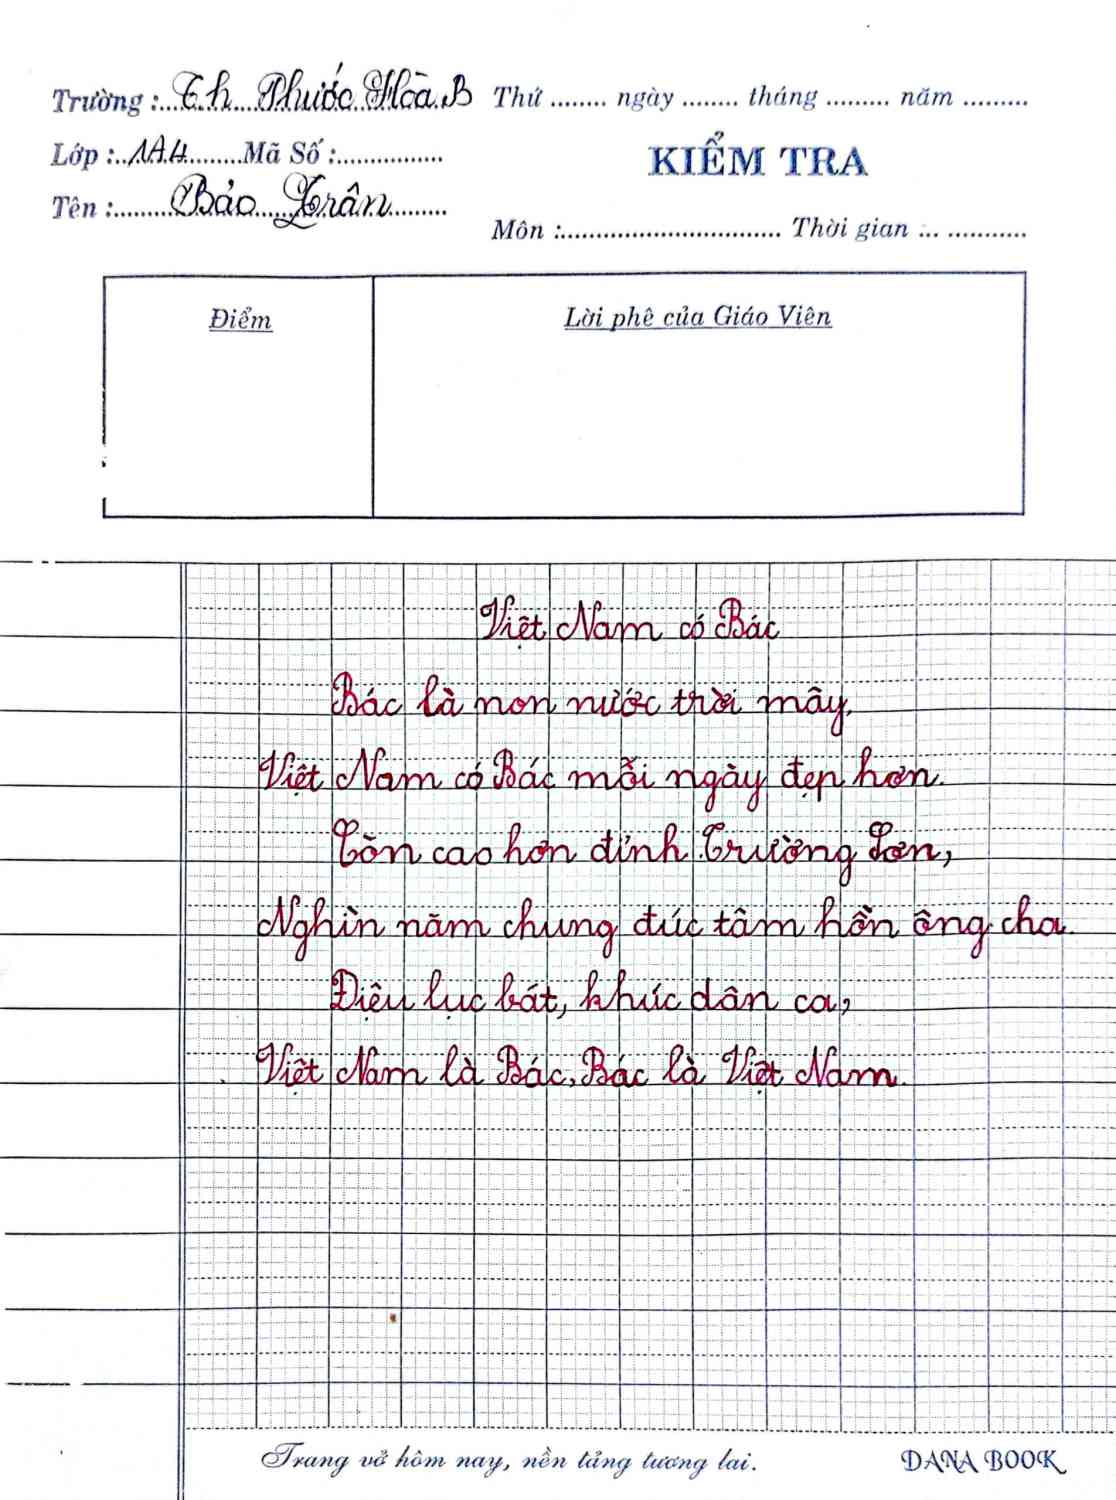 Trường :...Th Phước Hòa B Thứ ........ ngày ........ tháng ......... năm .........
Lớp :..1A4........Mã Số :...............
KIỂM TRA
Tên :........Bảo Trân........
Môn :............................... Thời gian :.. ...........
Điểm
Lời phê của Giáo Viên
Việt Nam có Bác
Bác là non nước trời mây,
Việt Nam có Bác mỗi ngày đẹp hơn.
Còn cao hơn đỉnh Trường Sơn,
Nghìn năm chung đúc tâm hồn ông cha.
Điệu lục bát, khúc dân ca,
Việt Nam là Bác, Bác là Việt Nam.
Trang vở hôm nay, nền tảng tương lai.
DANA BOOK